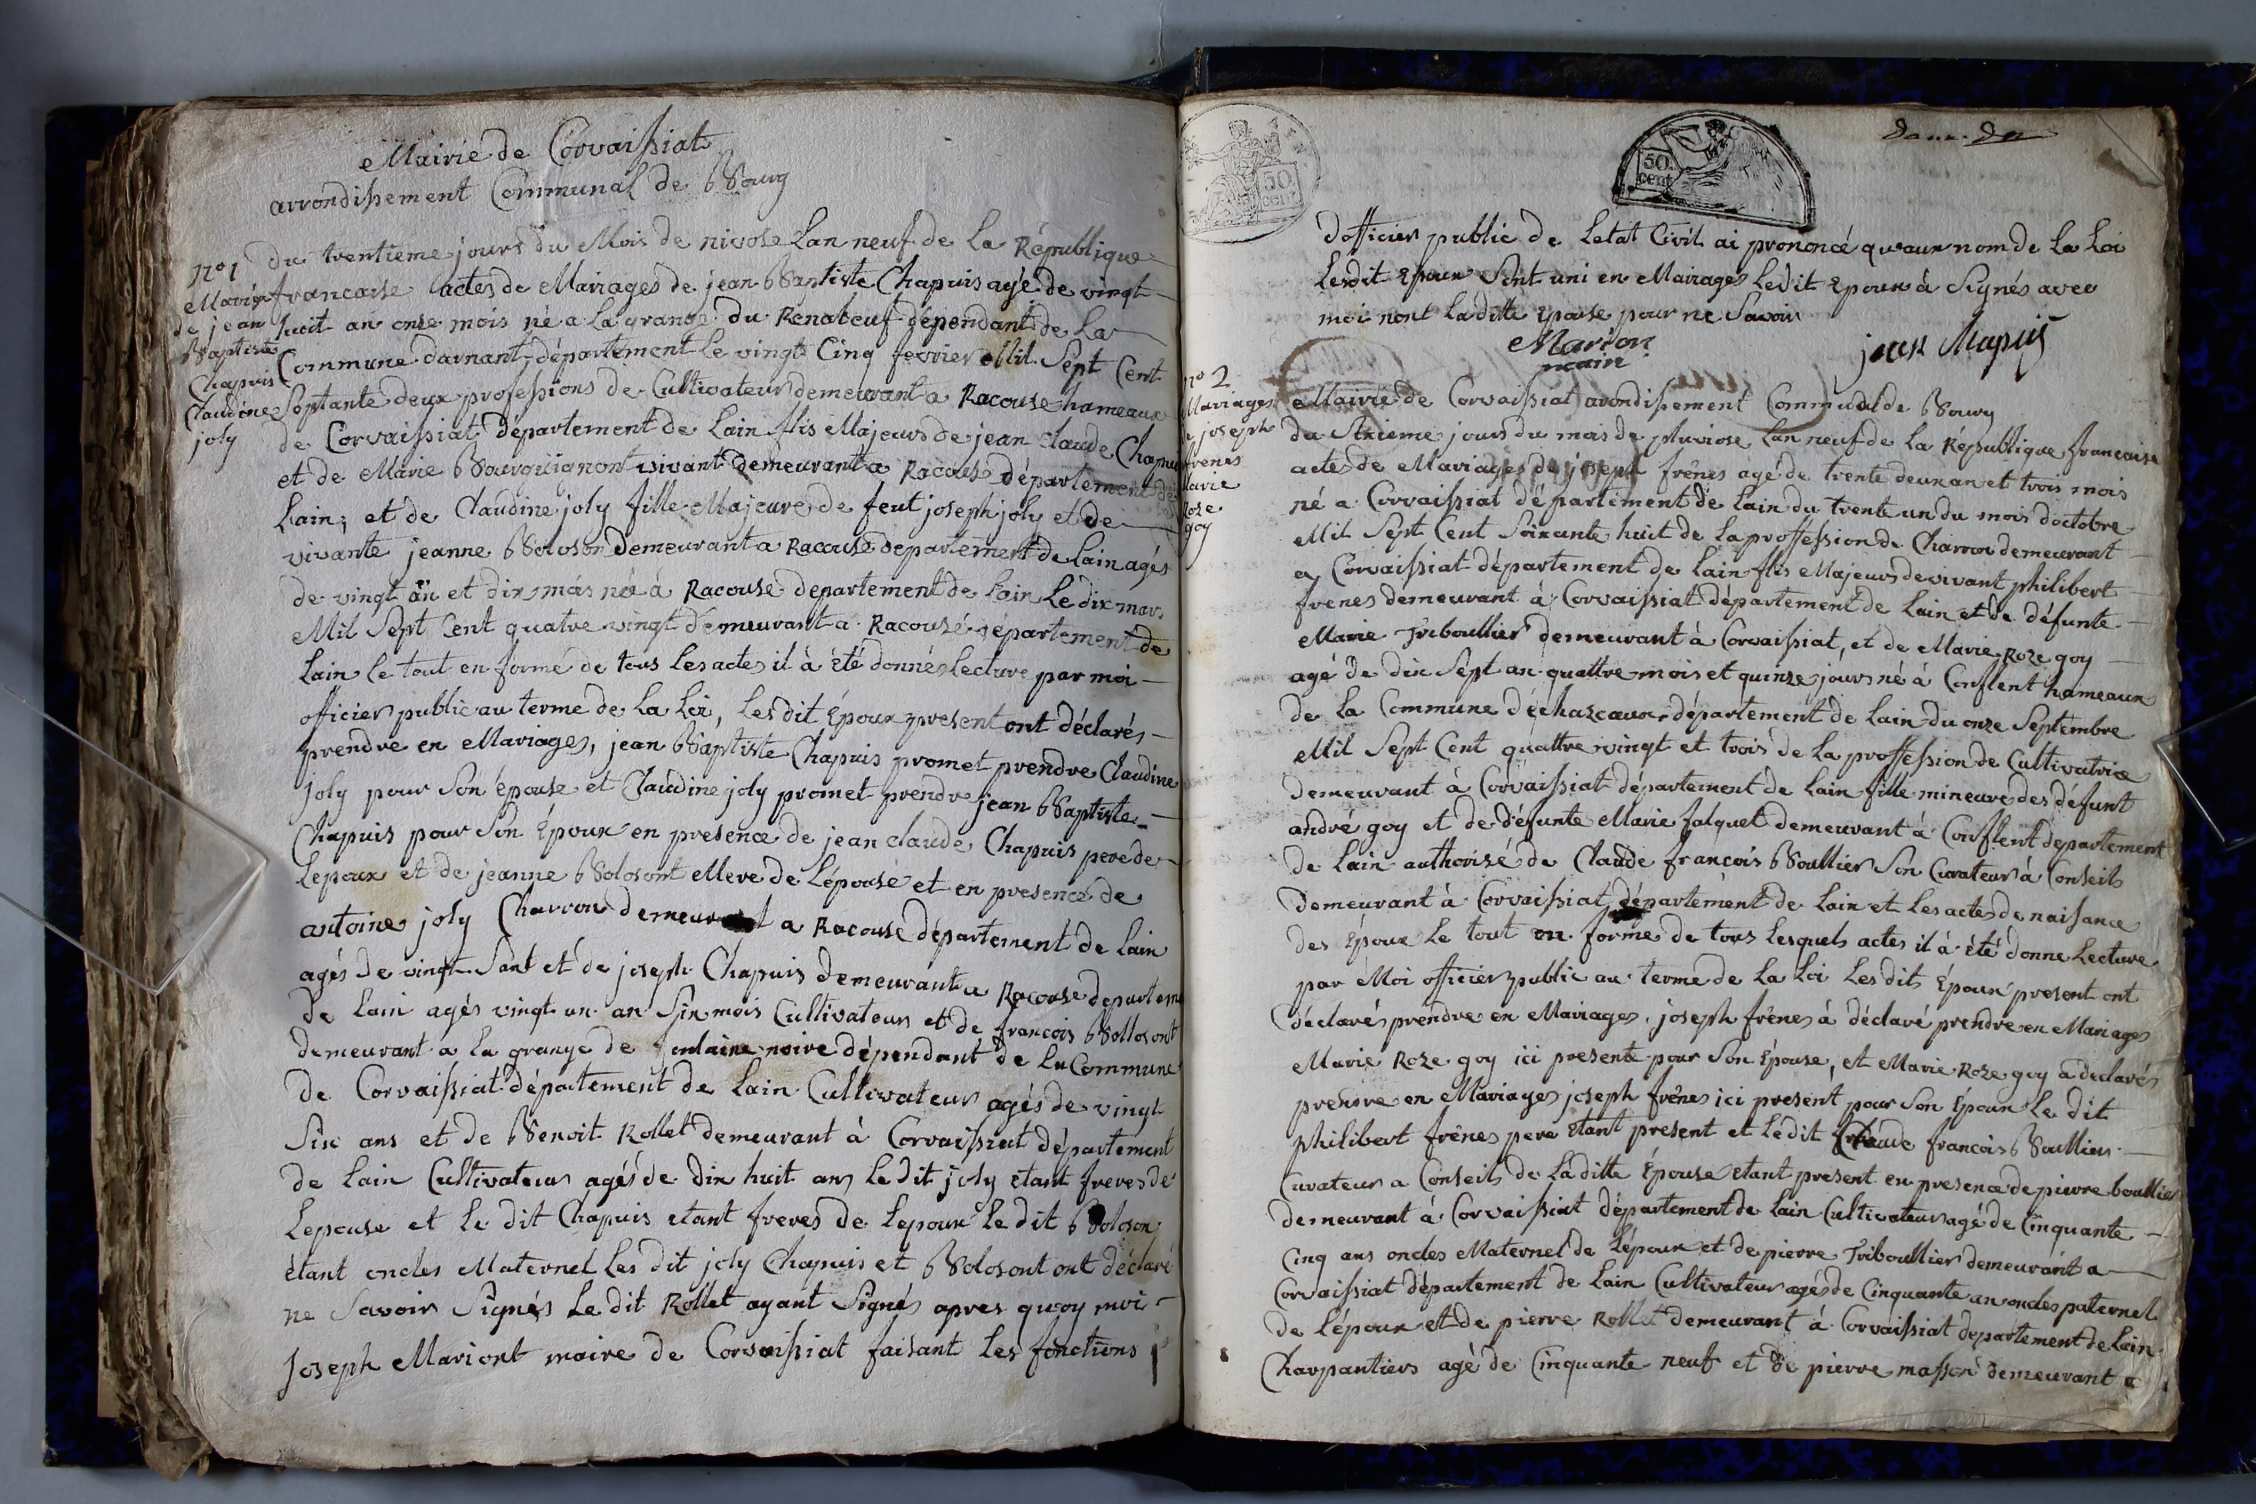 Mairie de Corvaissiat
arrondissement Communal de Bourg
nº 1
Mariage
de jean
Baptiste
Chapuis
Claudine
joly
du trentieme jours du Mois de nivose Lan neuf de La République
francaise actes de Mariages de jean Baptiste Chapuis agé de vingt
huit an onze mois né a La grange du Renabeuf dépendant de La
Commune darnant, département Le vingt Cinq fevrier Mil Sept Cent
Soptante deux professions de Cultivateur demeurant a Racouse hameaux
de Corvaissiat département de Lain flis Majeurs de jean Claude Chapui
et de Marie Bourguignont vivant demeurant a Racouse département de
Lain; et de Claudine joly fille Majeure de feut joseph joly et de
vivante jeanne Boloson demeurant a Racouse departement de Lain agés
de vingt an et dix mois né à Racouse departement de Lain Le dix mars
Mil Sept Cent quatre vingt demeurant a Racouse departement de
Lain le tout en forme de tous Les actes il à été donnés Lecture par moi
officier public au terme de La Loi, Les dit Époux present ont déclarés
prendre en Mariages, jean Baptiste Chapuis promet prendre Claudine
joly pour Son épouse et Claudine joly promet prendre jean Baptiste
Chapuis pour Son Époux en presence de jean Claude Chapuis pere de
Lepoux et de jeanne Bolosont Mere de Lépouse et en presence de
antoine joly Charron demeurant a Racouse département de Lain
agés de vingt Sant et de joseph Chapuis demeurant a Racouse departem
de Lain agés vingt un an Six mois Cultivateur et de francois Bollosont
demeurant a la grange de fontaine noire dépendant de La Commune
de Corvaissiat département de Lain Cultivateur agés de vingt
Six ans et de Benoit Rollet demeurant à Corvaissiat département
de Lain Cultivateur agés de dix huit ans Le dit joly etant freres de
Lepouse et Le dit Chapuis etant freres de Lepoux Le dit Boloson
étant oncles Maternel Les dit joly Chapuis et Bolosont ont déclaré
ne Savoir Signés Le dit Rollet ayant Signés apres quoy moi
Joseph Mariont maire de Corvaissiat faisant Les fonctions
50 cent
50. cent
dofficier public de Letat Civil ai prononcé qu'aux nom de La Loi
Lesdit Epoux Sont uni en Mairages Ledit Epoux à Signés avec
moi nont La ditte Epouse pour ne Savoir
Marion
maire
jean Chapuis
nº 2
Mariages
joseph
frenes
Marie
Roze
goy
Mairie de Corvaissiat arondissement Communal de Bourg
du Sixieme jours du mois de pluviose Lan neuf de La République francaise
actes de Mariages de joseph frênes agé de trente deux an et trois mois
né a Corvaissiat département de Lain du trente un du mois doctobre
Mil Sept Cent Soixante huit de La proffession de Charron demeurant
a Corvaissiat département de Lain flis Majeurs de vivant philibert
frenes demeurant à Corvaissiat département de Lain et de défunte
Marie Triboullier demeurant à Corvaissiat, et de Marie Roze goy
agé de dix Sept an quattre mois et quinze jours né à Conflent hameaux
de La Commune déchazeaux département de Lain du onze Septembre
Mil Sept Cent quattre vingt et trois de La proffession de Cultivatrice
demeurant à Corvaissiat département de Lain fille mineure des défunt
andré goy et de défunte Marie falquet demeurant à Conflent département
de Lain authorisé de Claude françois Boullier Son Curateur à Conseils
demeurant à Corvaissiat département de Lain et Les actes de naissance
des Époux Le tout en forme de tous Lesquels actes il à été donne Lecture
par Moi officier public au terme de La Loi Les dits Époux present ont
déclarés prendre en Mariages, joseph frênes à déclaré prendre en Mariages
Marie Roze goy ici presente pour Son Épouse, et Marie Roze goy a declarés
prendre en Mariages joseph frênes ici présent pour Son Époux Le dit
philibert frênes pere etant present et Le dit Claude francois Boullier
Curateur a Conseils de La ditte Épouse etant présent en presence de pierre boullier
demeurant à Corvaissiat département de Lain Cultivateur agé de Cinquante
Cinq ans oncles Maternel de Lépoux et de pierre Triboullier demeurant a
Corvaissiat département de Lain Cultivateur agés de Cinquante an oncles paternel
de Lépoux et de pierre Rollet demeurant à Corvaissiat departement de Lain
Charpantiers agé de Cinquante neuf et de pierre masson demeurant a